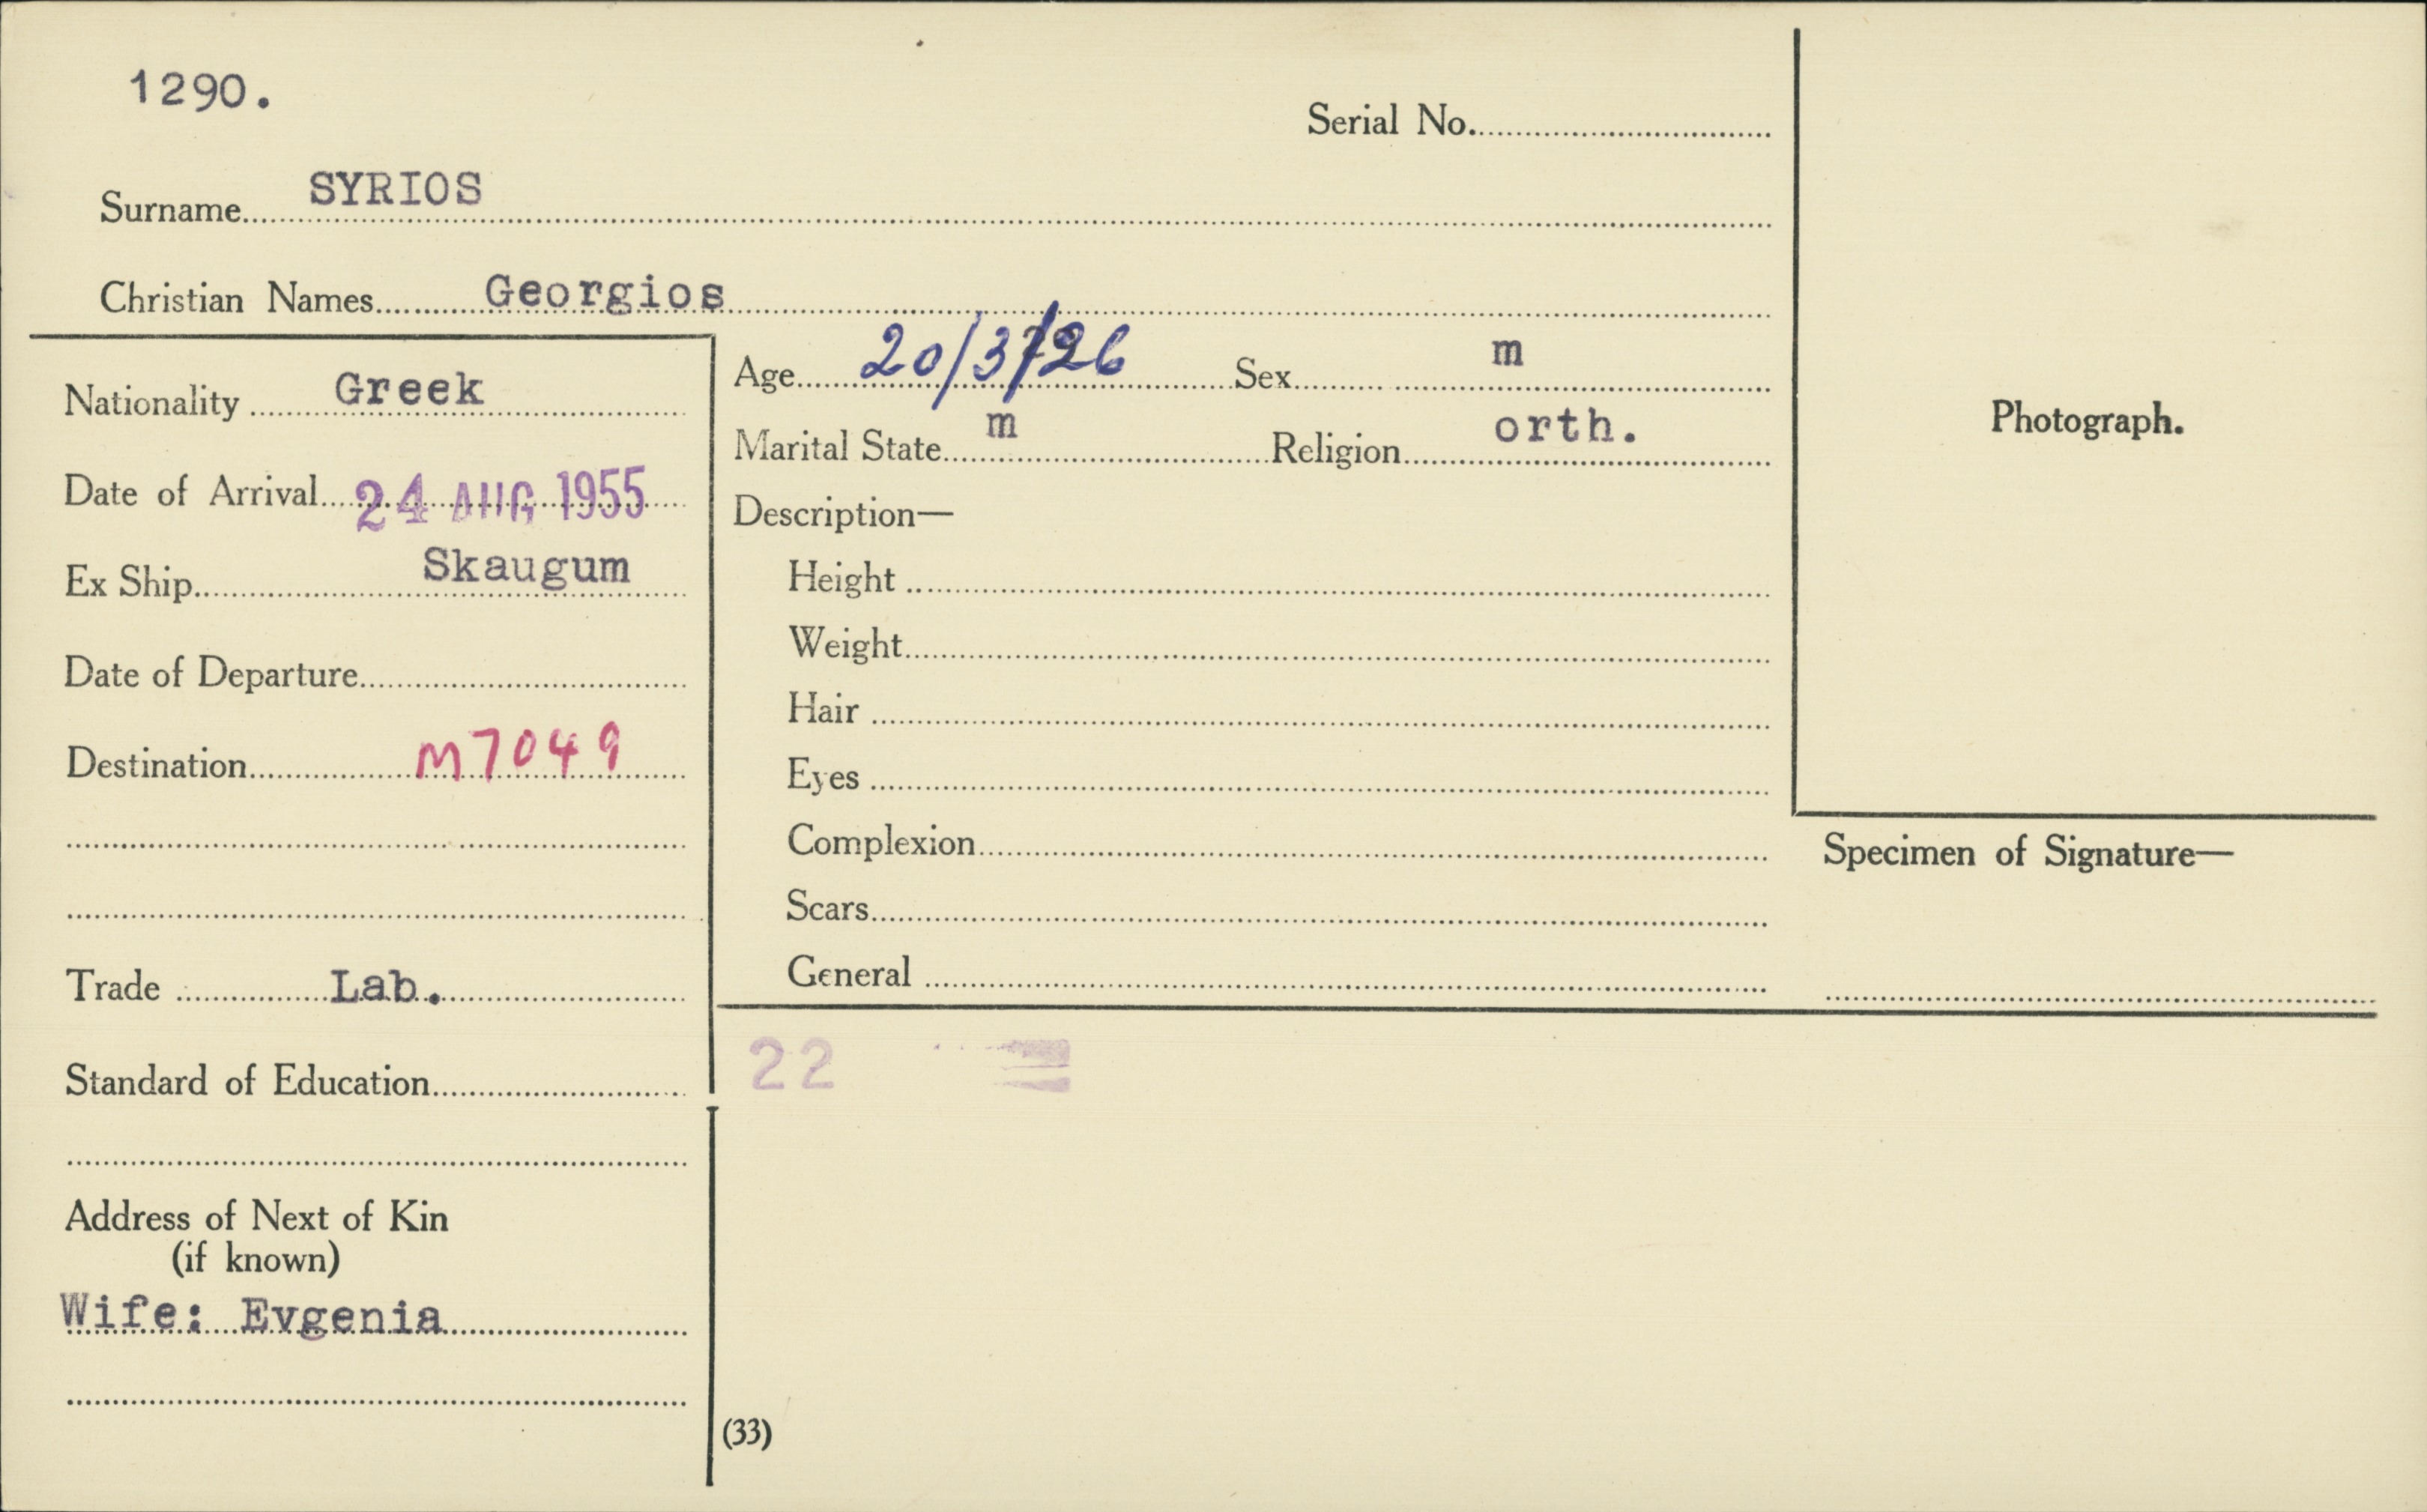 1290.
Serial No.
Surname SYRIOS
Christian Names Georgios
Nationality Greek
Date of Arrival 24 AUG 1955
Ex Ship Skaugum
Date of Departure
Destination M7049
Trade Lab.
Standard of Education
Address of Next of Kin
(if known)
Wife: Evgenia
Age 20/3/26 Sex m
Marital State m Religion orth.
Description—
Height
Weight
Hair
Eyes
Complexion
Scars
General
22
(33)
Photograph.
Specimen of Signature—